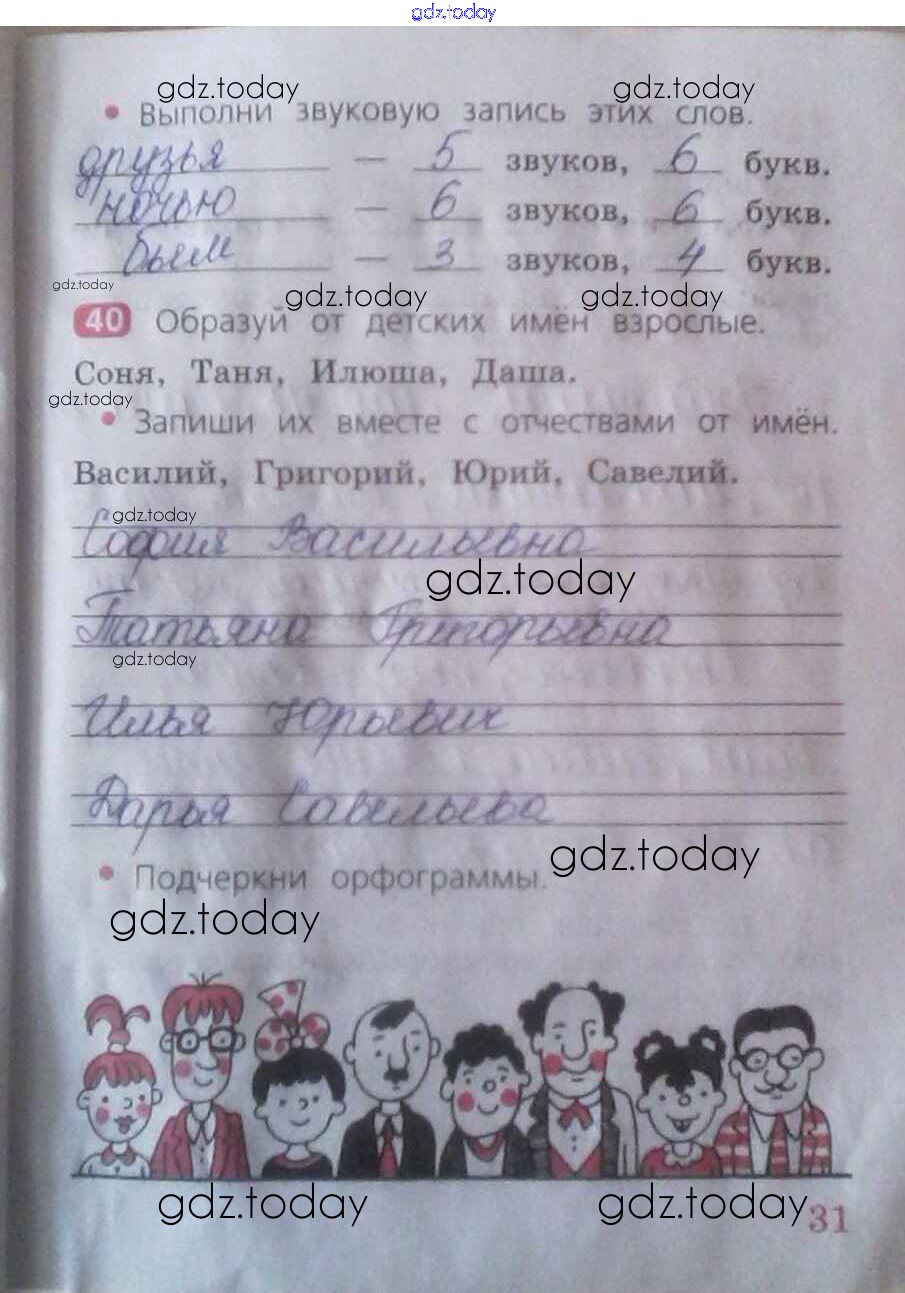 gdz.today
gdz.today gdz.today
• Выполни звуковую запись этих слов.
друзья — 5 звуков, 6 букв.
ночью — 6 звуков, 6 букв.
бьем — 3 звуков, 4 букв.
gdz.today gdz.today gdz.today
40 Образуй от детских имён взрослые.
Соня, Таня, Илюша, Даша.
gdz.today
• Запиши их вместе с отчествами от имён.
Василий, Григорий, Юрий, Савелий.
gdz.today
София Васильевна
gdz.today
Татьяна Григорьевна
gdz.today
Илья Юрьевич
Дарья Савельева
gdz.today
• Подчеркни орфограммы.
gdz.today
gdz.today gdz.today
31